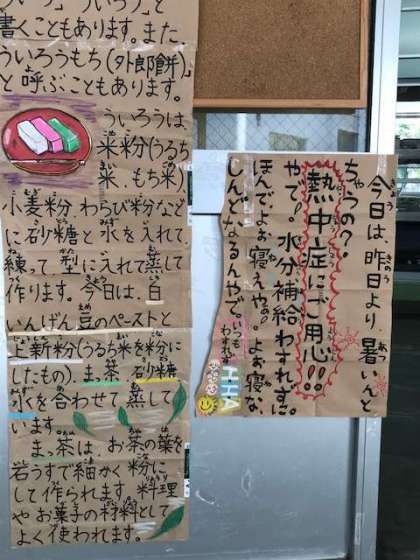 ういろう」と
書くこともあります。また
ういろうもち(外郎餅)」
と呼ぶこともあります。
ういろうは、
米粉(うるち
米、もち米)、
小麦粉、わらび粉など
に砂糖と水を入れて、
練って型に入れて蒸して
作ります。今日は、白
いんげん豆のペーストと
上新粉(うるち米を粉に
したもの)、ま茶、砂糖、
水を合わせて蒸して
います。
ま茶は、お茶の葉を
石うすで細かく粉に
して作られます。料理
やお菓子の材料として
よく使われます。
今日は、昨日より、暑いんと
ちゃうの?
熱中症にご用心!!
やで。水分補給わすれずに
ほんで、よぉ寝えやぁ。よぉ寝な
しんどなるんやで。